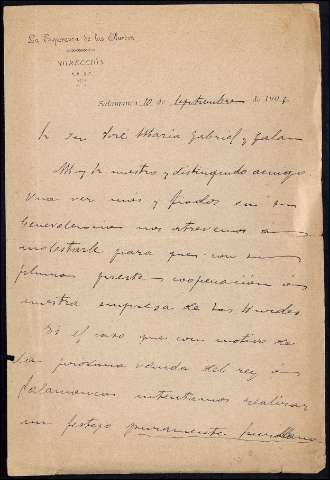 La Esperanza de las Hurdes
DIRECCIÓN
Salamanca 10 de Septiembre de 1904
Sr Don José María Gabriel y Galan
Muy Sr nuestro y distinguido amigo:
Una vez mas y fiados en su
benevolencia nos atrevemos a
molestarle para que con su
pluma preste cooperación a
nuestra empresa de las Hurdes
Es el caso que con motivo de
la proxima venida del rey a
Salamanca intentamos realizar
un festejo puramente